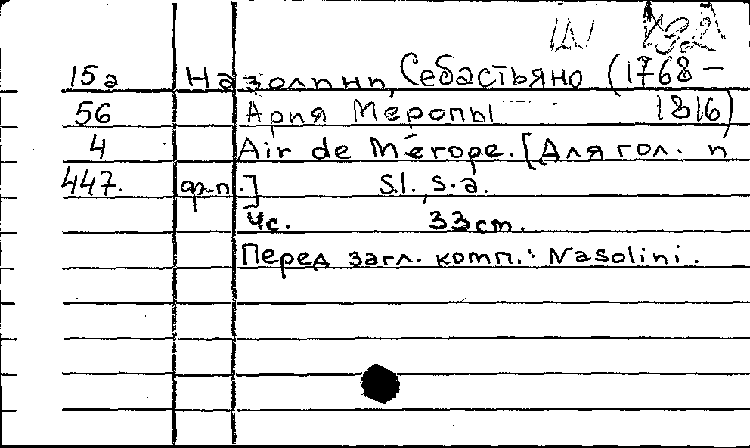 15а Назолини, Себастьяно (1768-
56 Ария Меропы 1816)
4 Air de Mérope. [Для гол. и
447. ф-п.] S.l., s.a.
4с. 33 cm.
Перед загл. комп.: Nasolini.